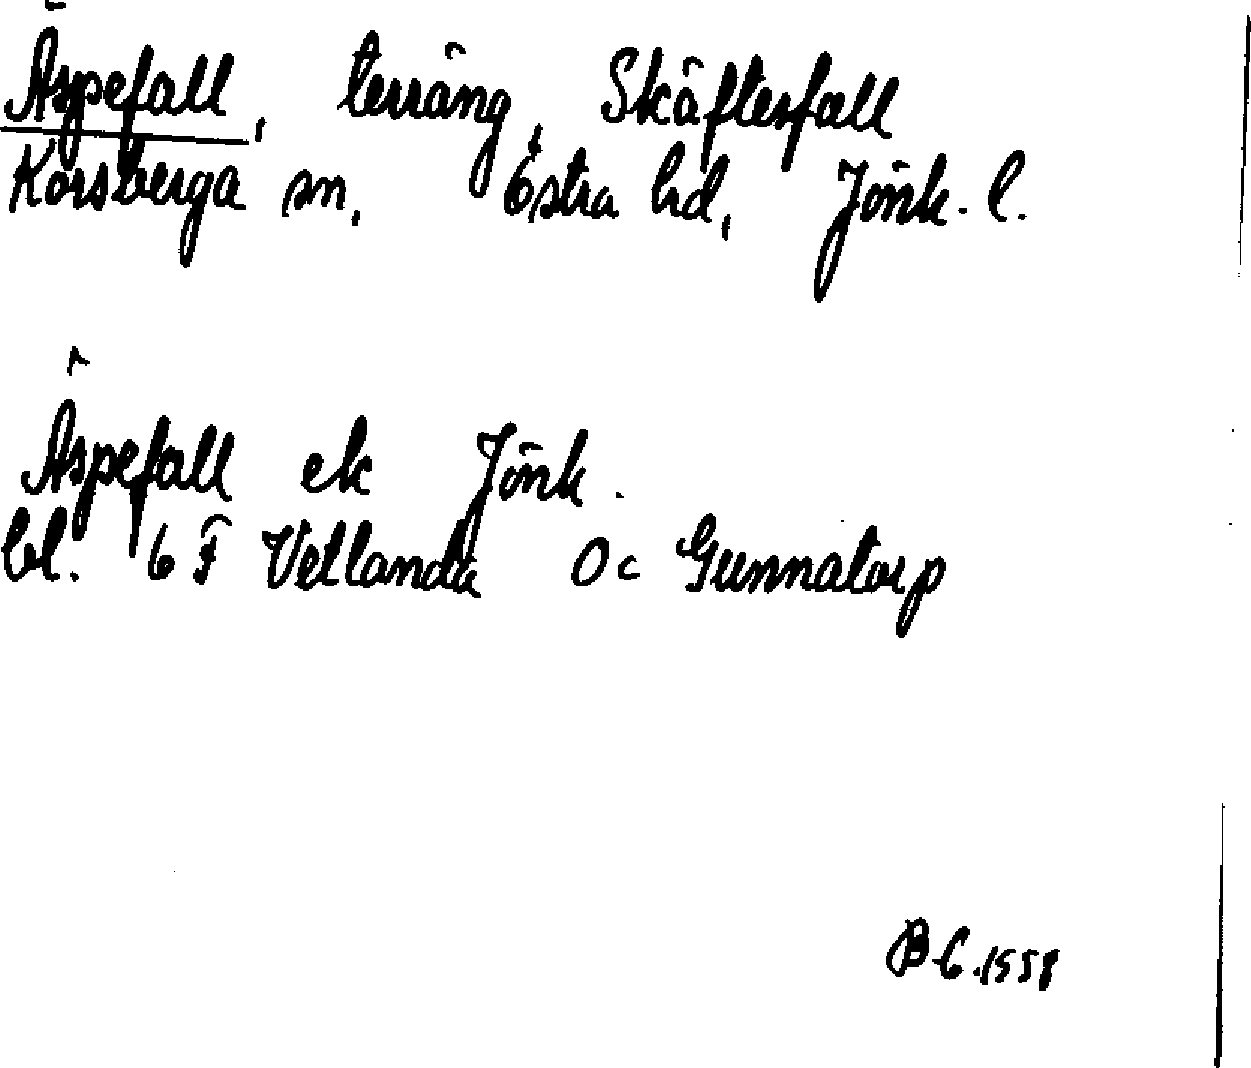 Äspefall, terräng, Skäftesfall
Korsberga sn, Östra hd, Jönk. l.
Äspefall ek Jönk.
bl. 6 F Vetlanda 0 c Gunnatorp